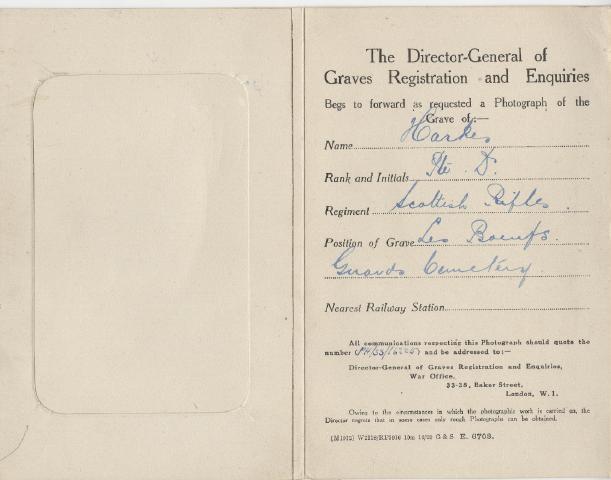 The Director-General of
Graves Registration and Enquiries
Begs to forward as requested a Photograph of the
Grave of:—
Name Harkes
Rank and Initials Pte. D.
Regiment Scottish Rifles.
Position of Grave Les Boeufs.
Guards Cemetery.
Nearest Railway Station
All communications respecting this Photograph should quote the
number and be addressed to:—
Director-General of Graves Registration and Enquiries,
War Office,
33-38, Baker Street,
London, W. 1.
Owing to the circumstances in which the photographic work is carried on, the
Director regrets that in some cases only rough Photographs can be obtained.
10m G & S E. 6703.